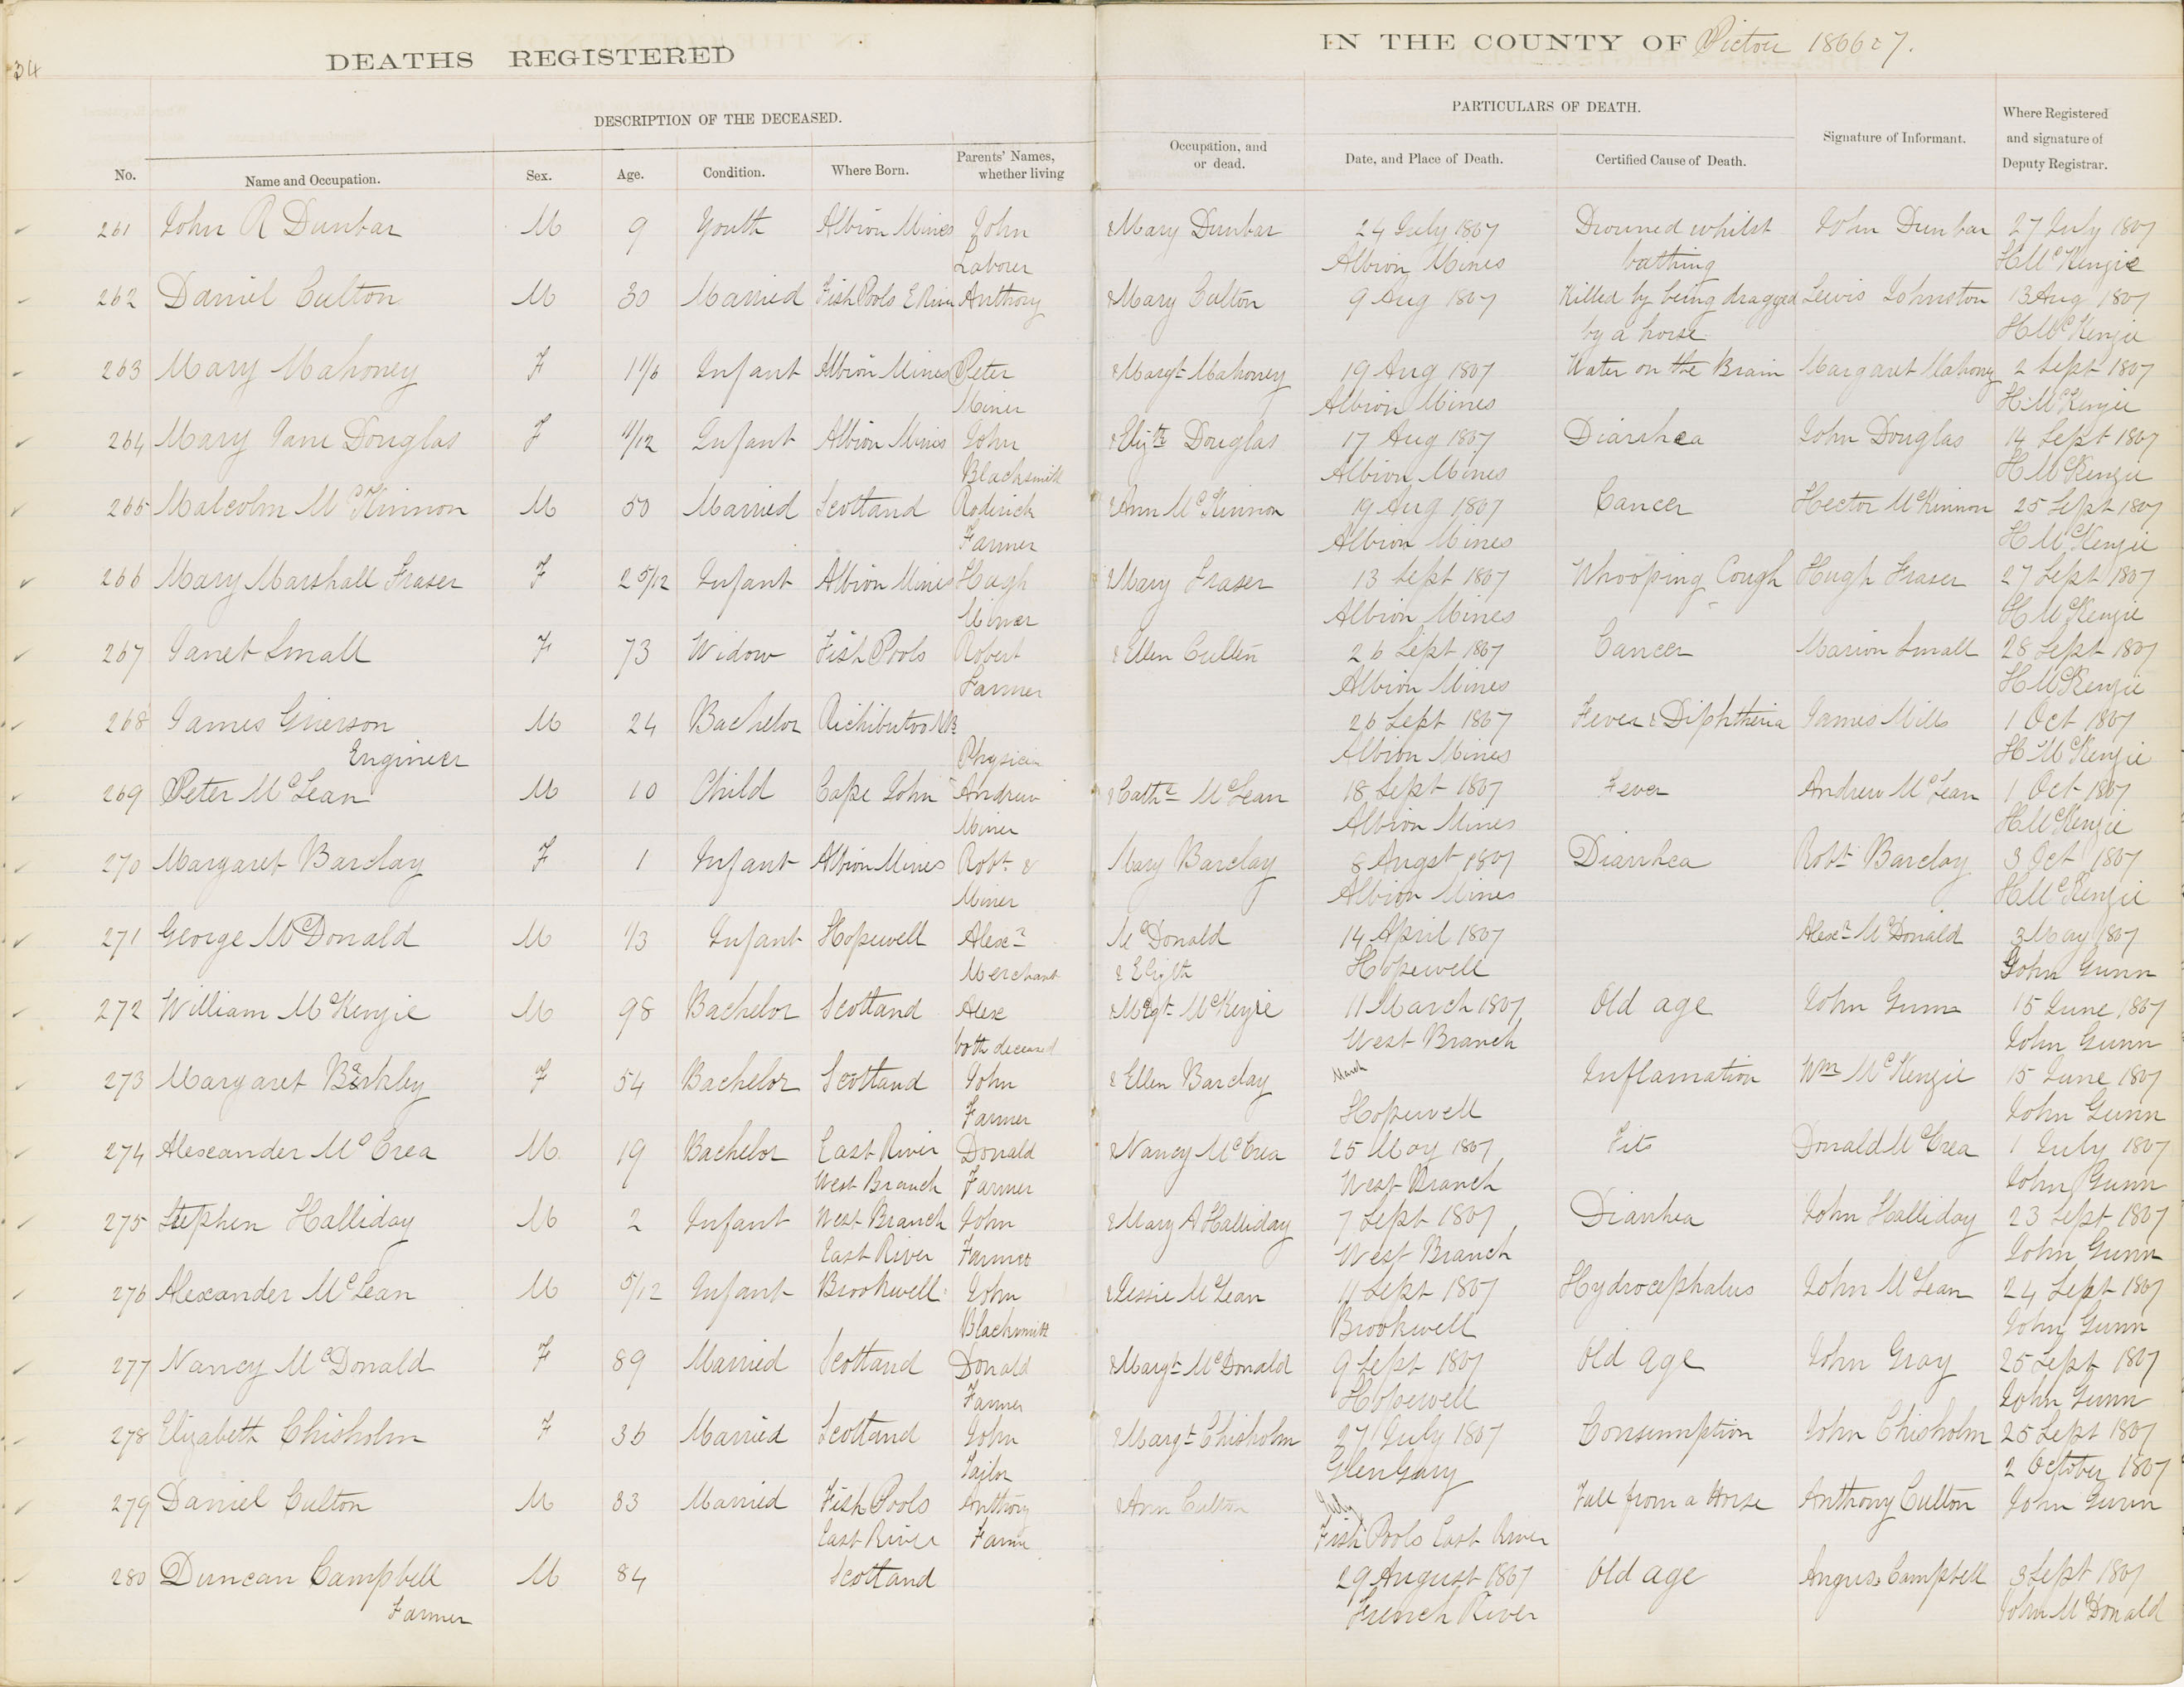 34
DEATHS REGISTERED
IN THE COUNTY OF Pictou 1866 & 7.
DESCRIPTION OF THE DECEASED.
PARTICULARS OF DEATH.
No. Name and Occupation. Sex. Age. Condition. Where Born. Parents' Names, whether living Occupation, and or dead. Date, and Place of Death. Certified Cause of Death. Signature of Informant. Where Registered and signature of Deputy Registrar.
261 John R Dunbar M 9 Youth Albion Mines John & Mary Dunbar 24 July 1867 Drowned whilst John Dunbar 27 July 1867
Laborer Albion Mines bathing H McKenzie
262 Daniel Culton M 30 Married Fish Pools E River Anthony & Mary Culton 9 Aug 1867 Killed by being dragged Lewis Johnston 13 Aug 1867
by a horse H McKenzie
263 Mary Mahoney F 1 1/6 Infant Albion Mines Peter & Margt Mahoney 19 Aug 1867 Water on the Brain Margaret Mahoney 2 Sept 1867
Miner Albion Mines H McKenzie
264 Mary Jane Douglas F 11/12 Infant Albion Mines John & Elizth Douglas 17 Aug 1867 Diarrhea John Douglas 14 Sept 1867
Blacksmith Albion Mines H McKenzie
265 Malcolm McKinnon M 50 Married Scotland Roderick & Ann McKinnon 19 Aug 1867 Cancer Hector McKinnon 25 Sept 1867
Farmer Albion Mines H McKenzie
266 Mary Marshall Fraser F 2 5/12 Infant Albion Mines Hugh & Mary Fraser 13 Sept 1867 Whooping Cough Hugh Fraser 27 Sept 1867
Miner Albion Mines H McKenzie
267 Janet Small F 73 Widow Fish Pools Robert & Ellen Cullen 26 Sept 1867 Cancer Marion Small 28 Sept 1867
Farmer Albion Mines H McKenzie
268 James Grierson M 24 Bachelor Richibutoo NB 26 Sept 1867 Fever & Diphtheria James Mills 1 Oct 1867
Engineer Physician Albion Mines H McKenzie
269 Peter McLean M 10 Child Cape John Andrew & Cathe McLean 18 Sept 1867 Fever Andrew McLean 1 Oct 1867
Miner Albion Mines H McKenzie
270 Margaret Barclay F 1 Infant Albion Mines Robt & Mary Barclay 8 Augst 1867 Diarrhea Robt Barclay 3 Oct 1867
Miner Albion Mines H McKenzie
271 George McDonald M 1/3 Infant Hopewell Alexr McDonald 14 April 1867 Alexr McDonald 3 May 1867
Merchant & Elizth Hopewell John Gunn
272 William McKenzie M 98 Bachelor Scotland Alex & Mrgt McKenzie 11 March 1867 Old age John Gunn 15 June 1867
both deceased West Branch John Gunn
273 Margaret Barkley F 54 Bachelor Scotland John & Ellen Barclay March Inflamation Wm McKenzie 15 June 1867
Farmer Hopewell John Gunn
274 Alexander McCrea M 19 Bachelor East River Donald & Nancy McCrea 25 May 1867 Fits Donald McCrea 1 July 1867
West Branch Farmer West Branch John Gunn
275 Stephen Halliday M 2 Infant West Branch John & Mary A Halliday 7 Sept 1867 Diarrhea John Halliday 23 Sept 1867
East River Farmer West Branch John Gunn
276 Alexander McLean M 5/12 Infant Brookwell John & Jessie McLean 11 Sept 1867 Hydrocephalus John McLean 24 Sept 1867
Blacksmith Brookwell John Gunn
277 Nancy McDonald F 89 Married Scotland Donald & Margt McDonald 9 Sept 1867 Old age John Gray 25 Sept 1867
Farmer Hopewell John Gunn
278 Elizabeth Chisholm F 36 Married Scotland John & Margt Chisholm 27 July 1867 Consumption John Chisholm 25 Sept 1867
Tailor Glen Gary 2 October 1867
279 Daniel Culton M 33 Married Fish Pools Anthony & Ann Culton July Fall from a Horse Anthony Culton John Gunn
East River Farmer Fish Pools East River
280 Duncan Campbell M 84 Scotland 29 August 1867 Old age Angus Campbell 3 Sept 1867
Farmer French River John McDonald